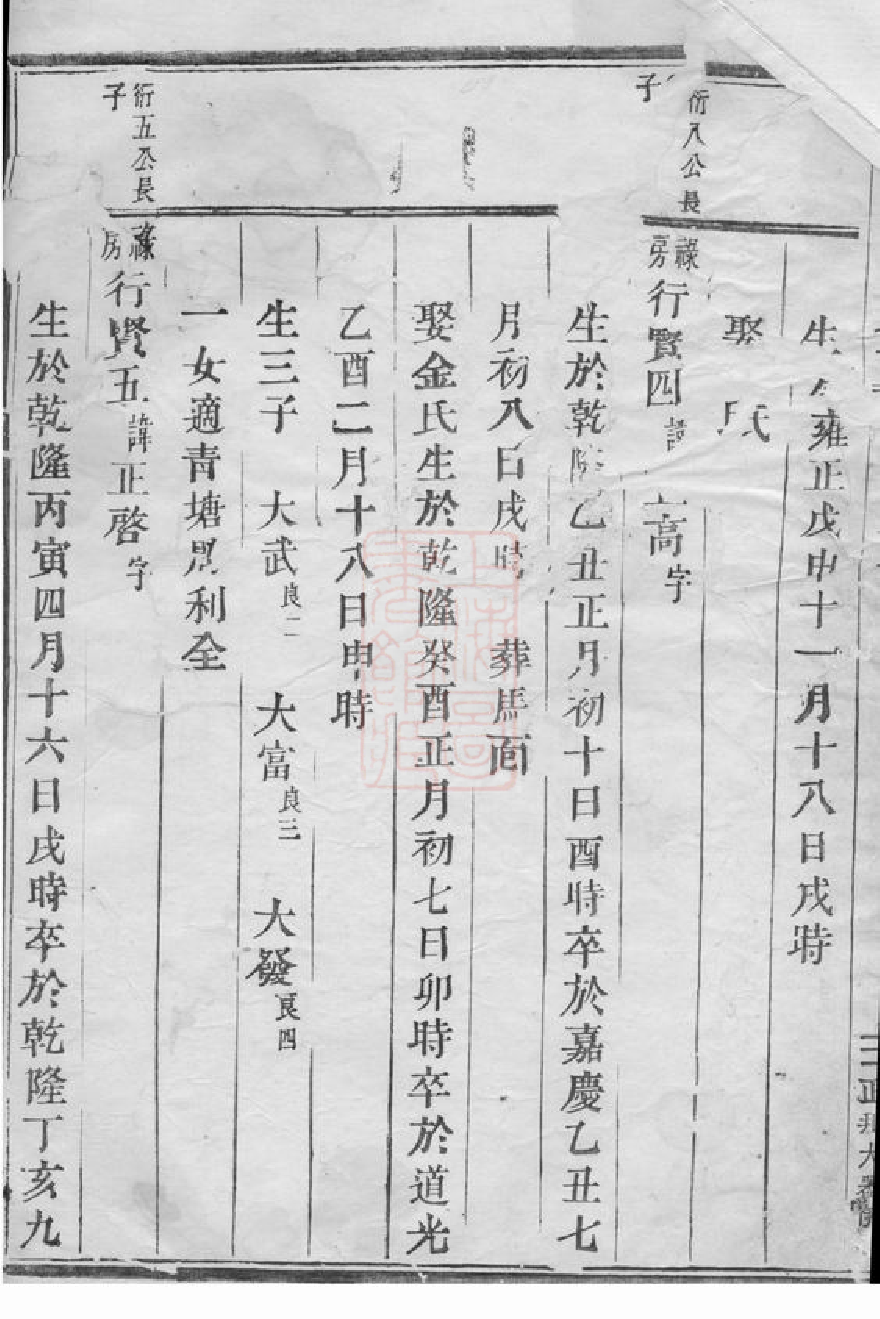 生雍正戊申十一月十八日戌時
娶氏
衍八公長
子
祿
房
行賢四高字
生於乾隆乙丑正月初十日酉時卒於嘉慶乙丑七
月初八日戌時 葬馬面
娶金氏生於乾隆癸酉正月初七日卯時卒於道光
乙酉二月十八日申時
生三子 大武良二 大富良三 大發良四
一女適青塘利全
衍五公長
子
祿
房
行賢五諱正啓字
生於乾隆丙寅四月十六日戌時卒於乾隆丁亥九